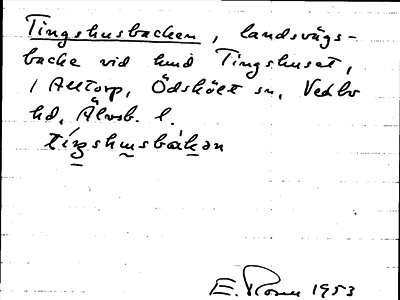 Tingshusbacken, landsvägs-
backe vid Tingshuset,
i Alltorp, Ödskölt sn, Vedbo
hd, Älvsb. l.
tíŋshusbàkən
E. Rosen 1953